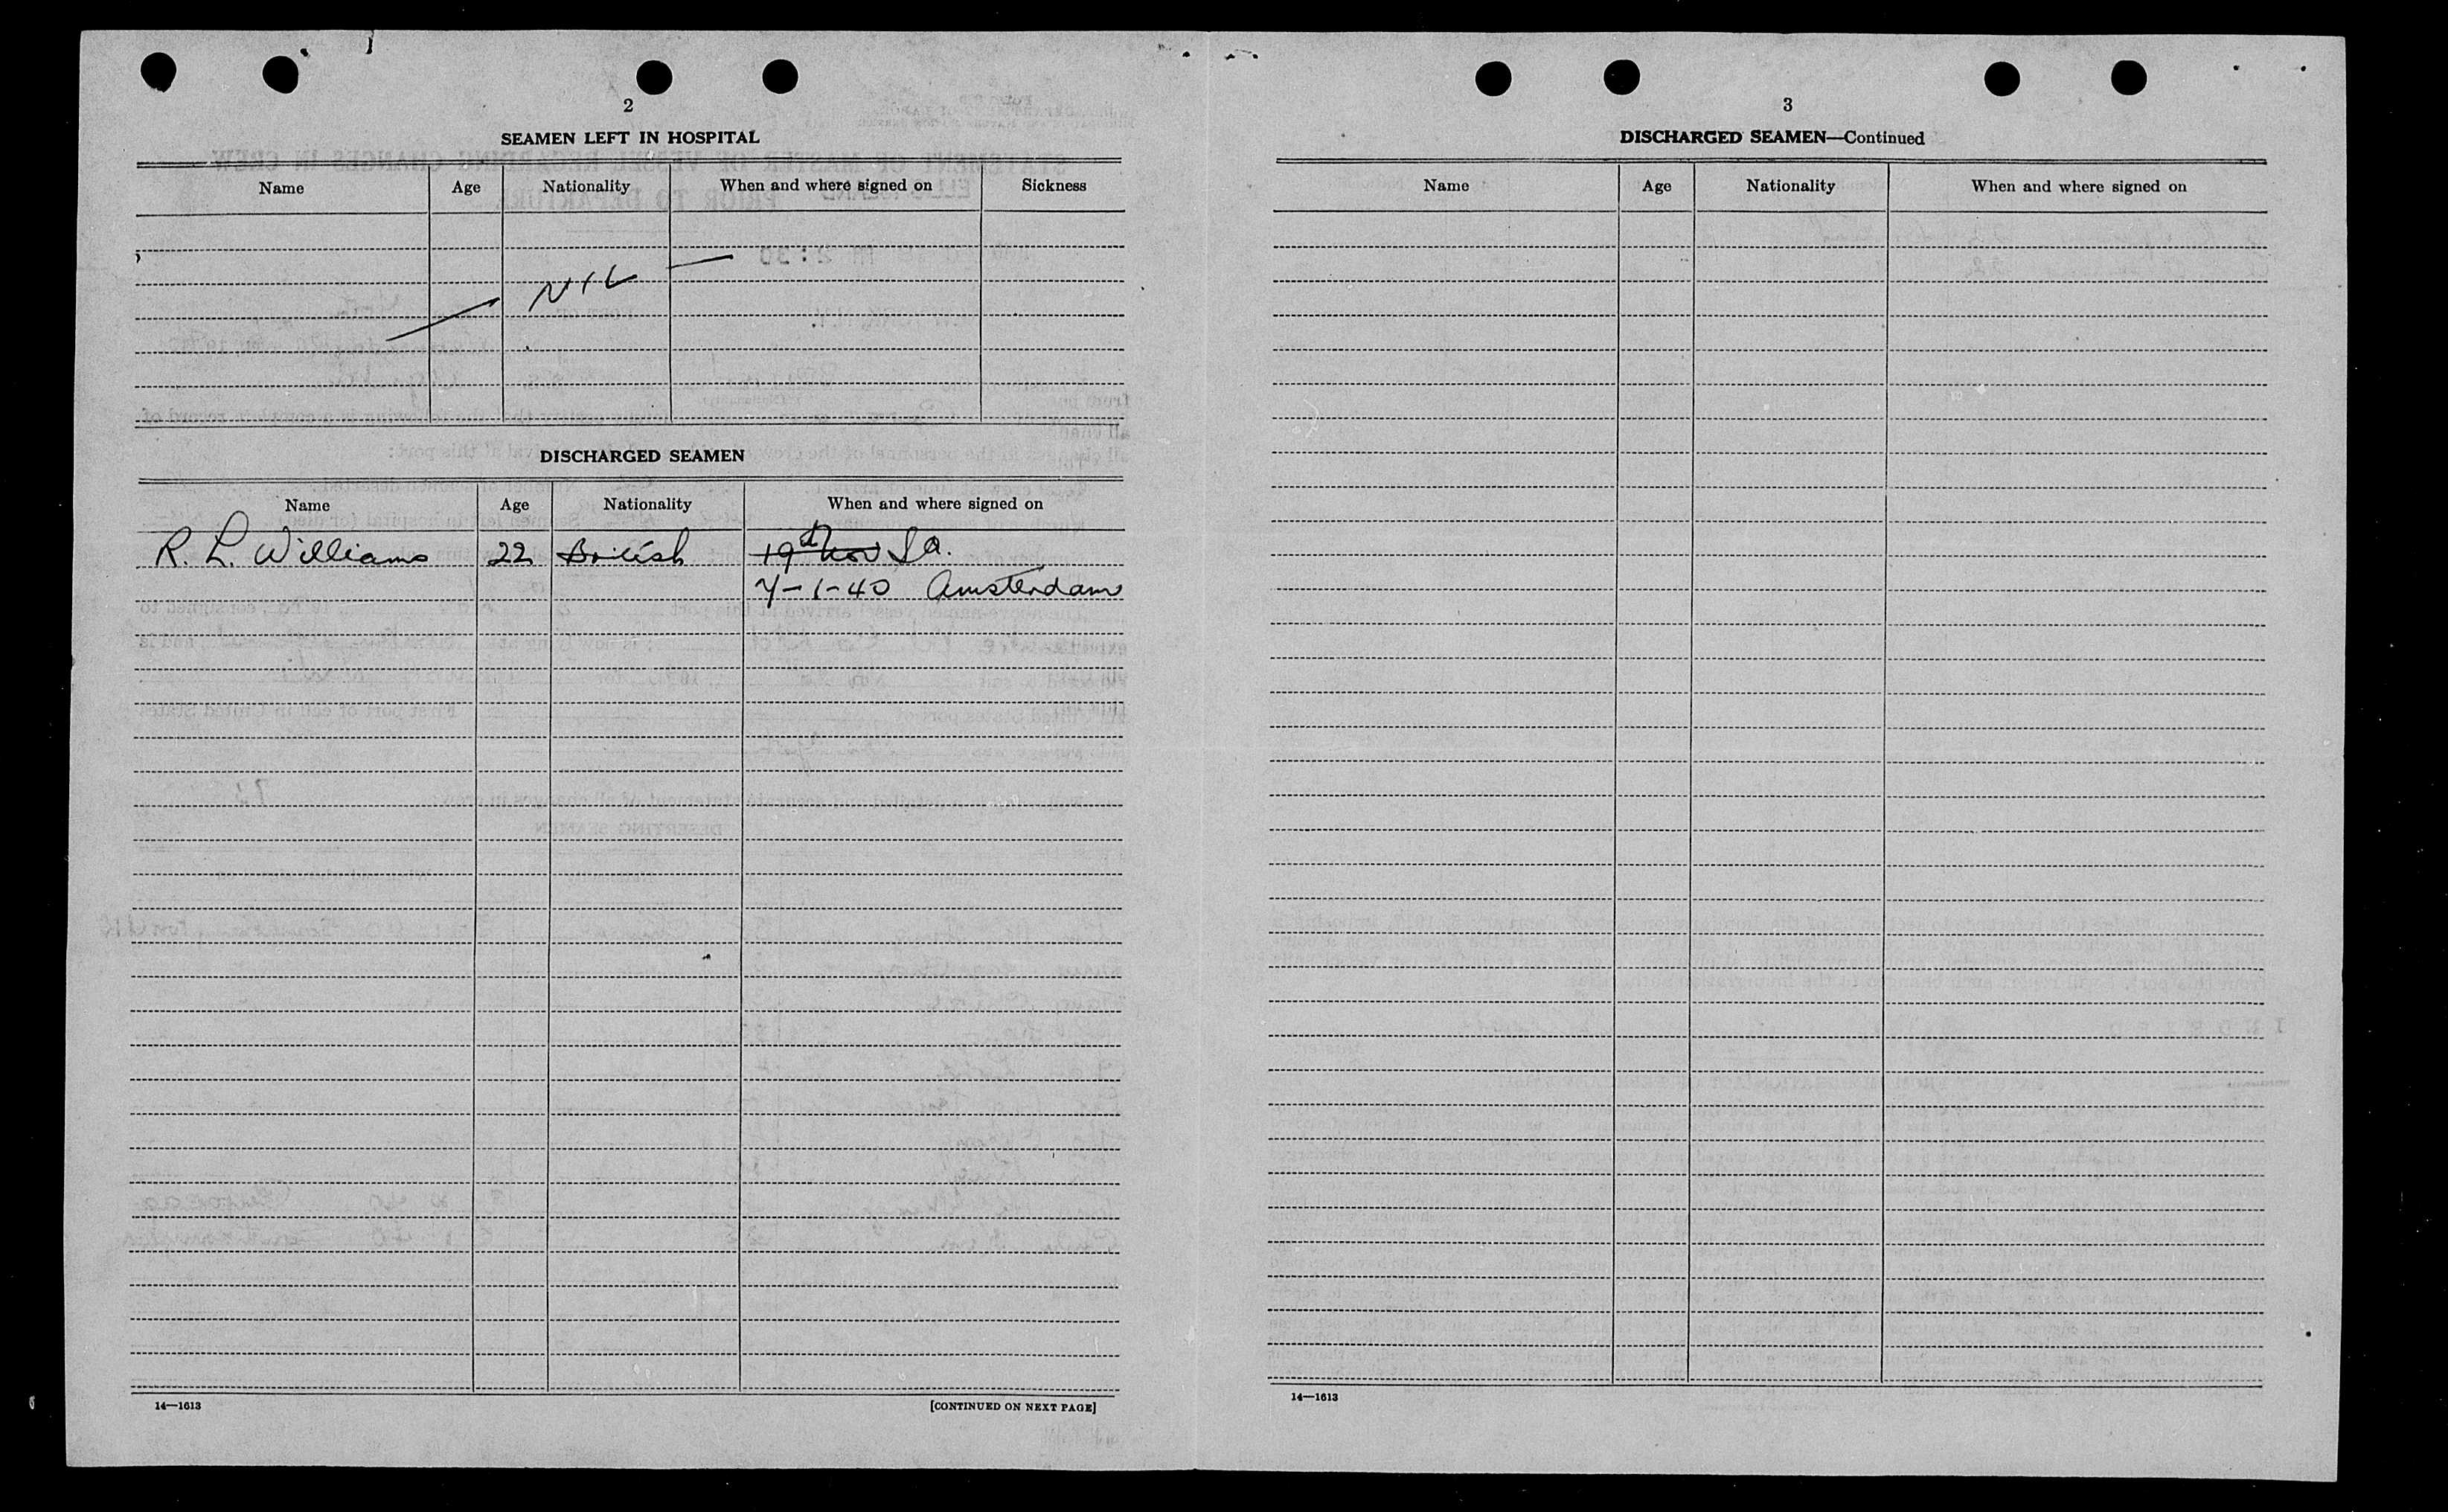 2
SEAMEN LEFT IN HOSPITAL
Name Age Nationality When and where signed on Sickness
NIL
DISCHARGED SEAMEN
Name Age Nationality When and where signed on
R. L. Williams 22 British 19th Nov
7-1-40 Amsterdam
14—1613 [CONTINUED ON NEXT PAGE]
3
DISCHARGED SEAMEN—Continued
Name Age Nationality When and where signed on
14—1613